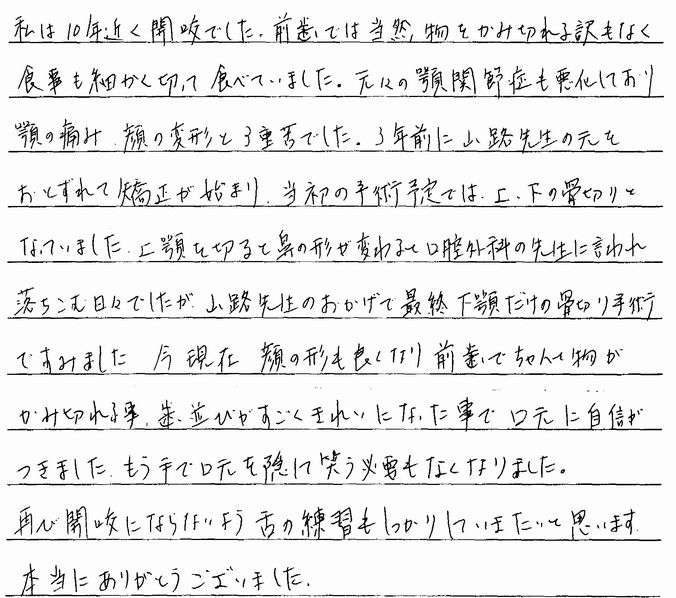 私は10年近く開咬でした。前歯では当然、物をかみ切れる訳もなく
食事も細かく切って食べていました。元々の顎関節症も悪化しており
顎の痛み、顔の変形と3重苦でした。3年前に山路先生の元を
おとずれて矯正が始まり、当初の手術予定では、上、下の骨切りと
なっていました。上顎を切ると鼻の形が変わると口腔外科の先生に言われ
落ちこむ日々でしたが山路先生のおかげで最終下顎だけの骨切り手術
ですみました 今現在 顔の形も良くなり前歯でちゃんと物が
かみ切れる事、歯並びがすごくきれいになった事で口元に自信が
つきました。もう手で口元を隠して笑う必要もなくなりました。
再び開咬にならないよう舌の練習もしっかりしていきたいと思います。
本当にありがとうございました。